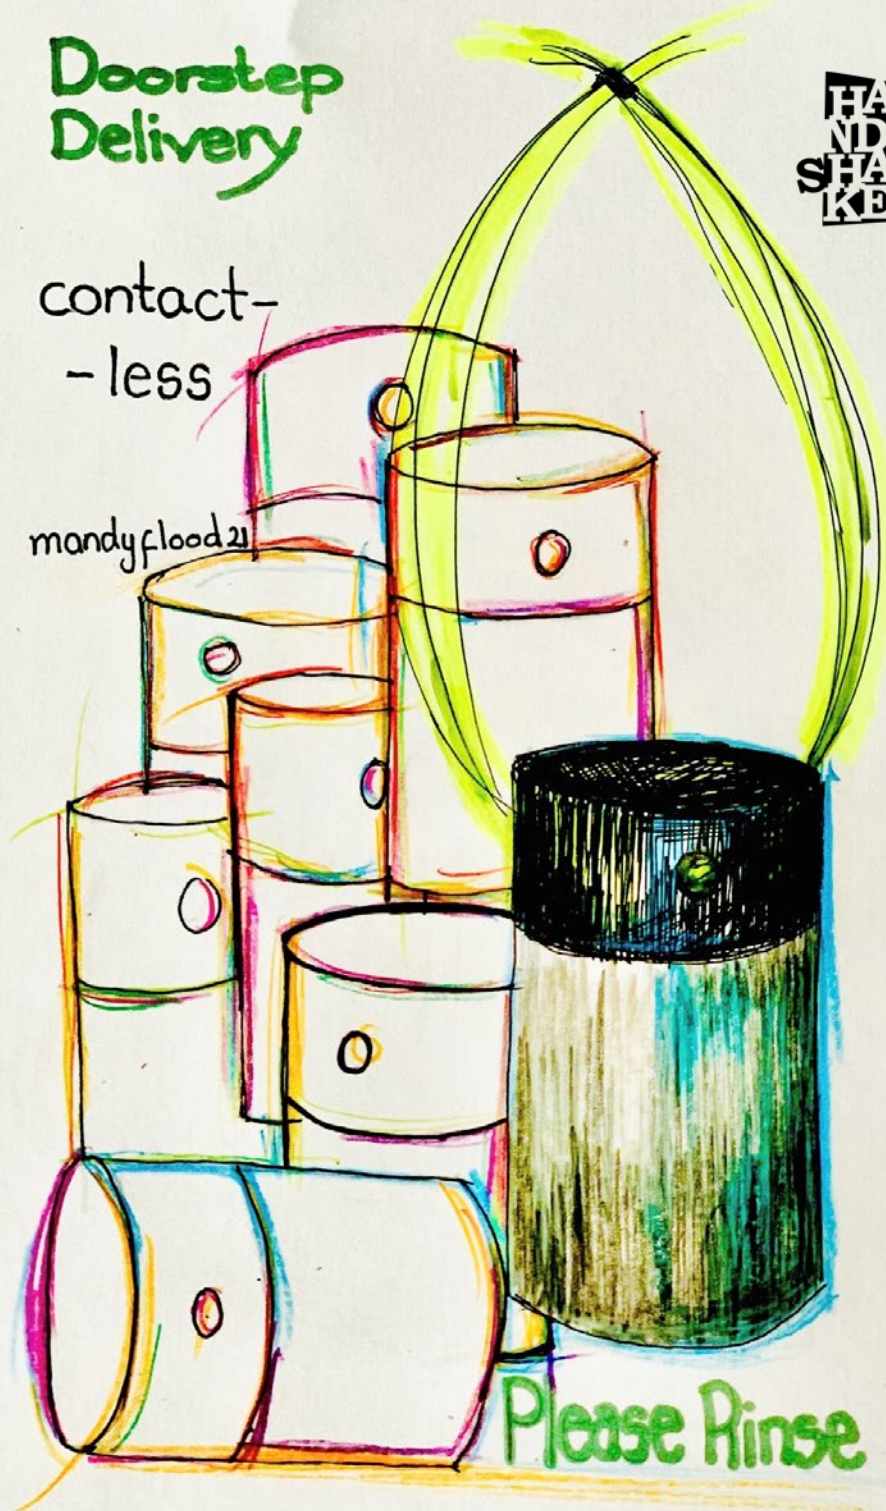 Doorstep
Delivery
HA
ND
SHA
KE
contact-
-less
mandyflood21
Please Rinse